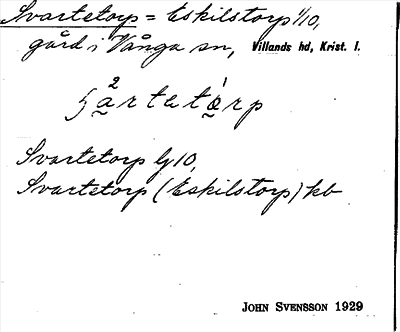 Svartetorp = Eskilstorp 1/10,
gård i Vånga sn, Villands hd, Krist. l.
Svartetorp lj 10,
Svartetorp (Eskilstorp) kb
JOHN SVENSSON 1929